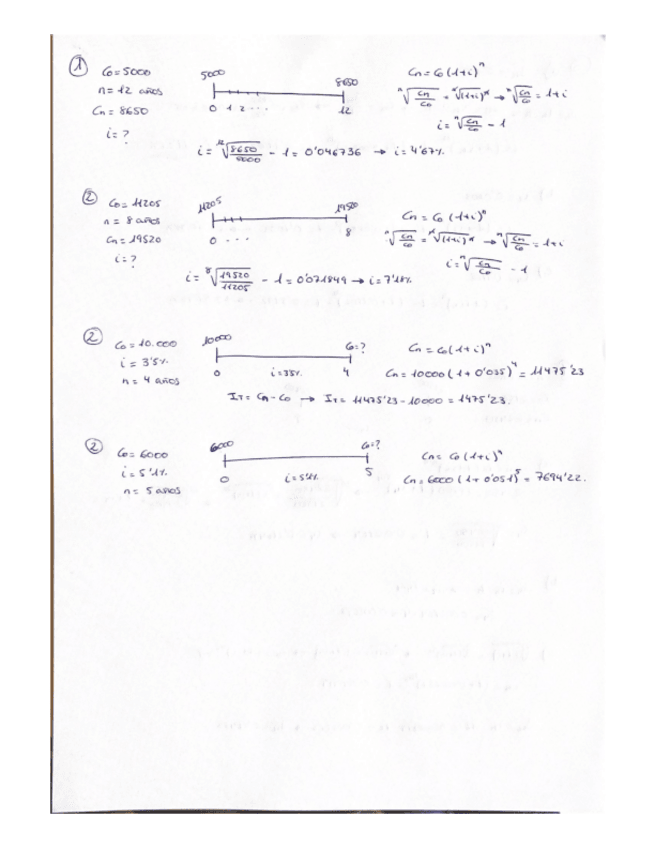 ① C₀ = 5000
n = 12 años
Cn = 8650
i = ?
5000 8650
0 1 2 ... 12
Cn = C₀ (1+i)ⁿ
ⁿ√(Cn/C₀) = ⁿ√(1+i)ⁿ → ⁿ√(Cn/C₀) = 1+i
i = ⁿ√(Cn/C₀) - 1
i = ¹²√(8650/5000) - 1 = 0'046736 → i = 4'67%
② C₀ = 11205
n = 8 años
Cn = 19520
i = ?
11205 19520
0 ... 8
Cn = C₀ (1+i)ⁿ
ⁿ√(Cn/C₀) = ⁿ√(1+i)ⁿ → ⁿ√(Cn/C₀) = 1+i
i = ⁿ√(Cn/C₀) - 1
i = ⁸√(19520/11205) - 1 = 0'071849 → i = 7'18%
② C₀ = 10.000
i = 3'5%
n = 4 años
10000 C₀=?
0 i=35% 4
Cn = C₀ (1+i)ⁿ
Cn = 10000 (1 + 0'035)⁴ = 11475'23
IT = Cn - C₀ → IT = 11475'23 - 10000 = 1475'23.
② C₀ = 6000
i = 5'1%
n = 5 años
6000 C₀=?
0 i=5'1% 5
Cn = C₀ (1+i)ⁿ
Cn = 6000 (1 + 0'051)⁵ = 7694'22.